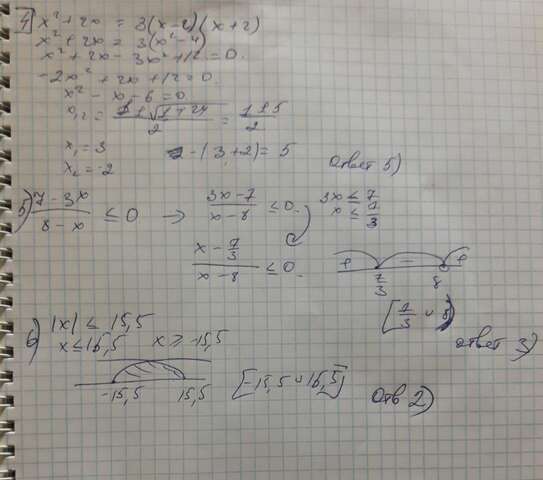 4) x² + 2x = 3(x-2)(x+2)
x² + 2x = 3(x² - 4)
x² + 2x - 3x² + 12 = 0.
-2x² + 2x + 12 = 0.
x² - x - 6 = 0
x₁,₂ = (1 ± √(1 + 24))/2 = (1 ± 5)/2
x₁ = 3
x₂ = -2
-(3+2) = 5
Ответ 5)
5) (7 - 3x)/(8 - x) ≤ 0 → (3x - 7)/(x - 8) ≤ 0.
3x ≤ 7
x ≤ 7/3
(x - 7/3)/(x - 8) ≤ 0.
+ - +
7/3 8
[7/3 ; 8)
Ответ 3)
6) |x| ≤ 15,5
x ≤ 15,5 x ≥ -15,5
-15,5 15,5
[-15,5 ; 15,5]
Отв 2)